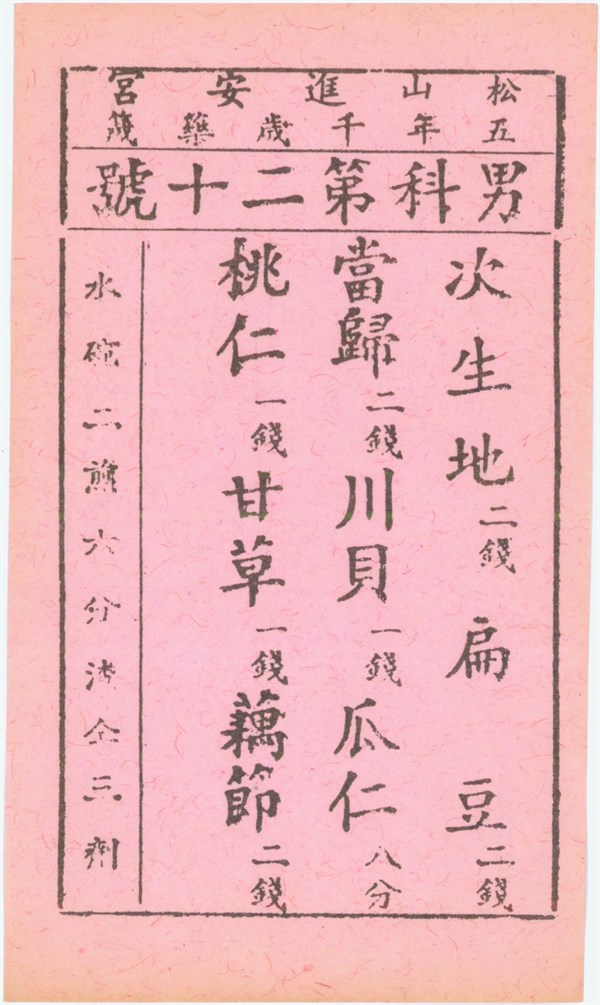 松山進安宮
五年千歲藥籤
男科第二十號
次生地二錢 扁豆二錢
當歸二錢 川貝一錢 瓜仁八分
桃仁一錢 甘草一錢 藕節二錢
水碗二煎六分渣仝三劑